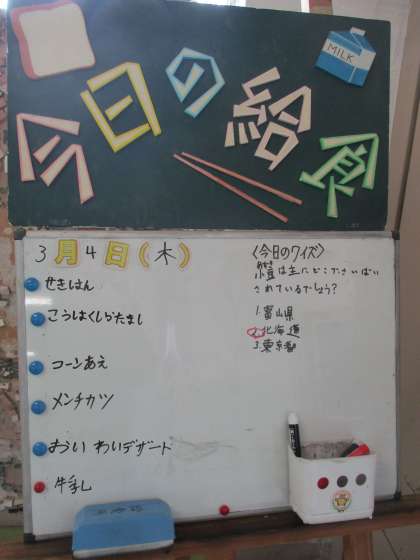 今日の給食
MILK
3月4日(木)
せきはん
こうはくしらたまし
コーンあえ
メンチカツ
おいわいデザート
牛乳
<今日のクイズ>
は主にどこでさいばい
されているでしょう?
1.富山県
2.北海道
3.東京都